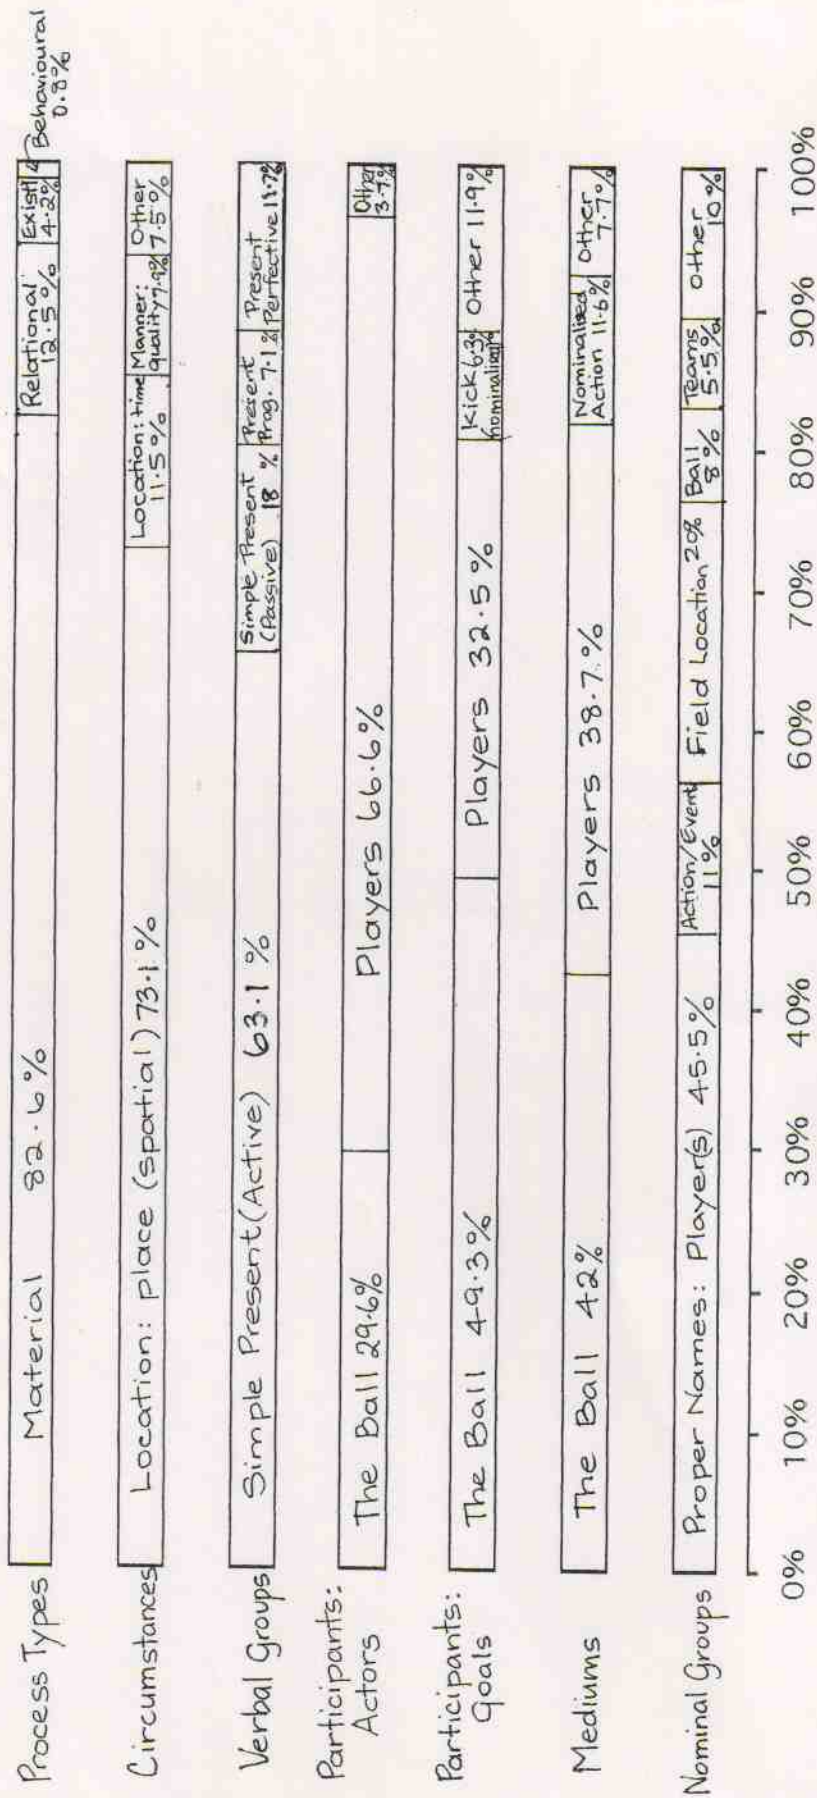 Process Types
Material 82.6%
Relational
12.5%
Exist'l
4.2%
Behavioural
0.8%
Circumstances
Location: place (spatial) 73.1%
Location: time
11.5%
Manner:
quality 7.9%
Other
7.5%
Verbal Groups
Simple Present (Active) 63.1 %
Simple Present
(Passive) 18 %
Present
Prog. 7.1%
Present
Perfective
Participants:
Actors
The Ball 29.6%
Players 66.6%
Other
3.7%
Participants:
Goals
The Ball 49.3%
Players 32.5%
Kick 6.3%
Other 11.9%
Mediums
The Ball 42%
Players 38.7%
Nominalised
Action 11.6%
Other
7.7%
Nominal Groups
Proper Names: Player(s) 45.5%
Action/Event
11%
Field Location 20%
Ball
8%
Teams
5.5%
Other
10%
0% 10% 20% 30% 40% 50% 60% 70% 80% 90% 100%